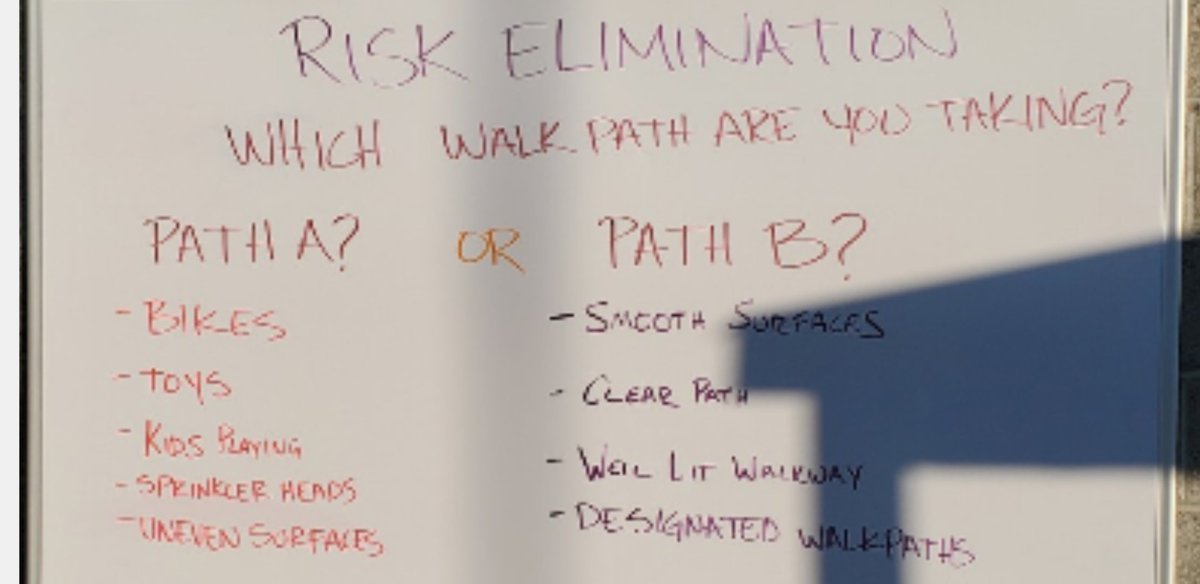 RISK ELIMINATION
WHICH WALK PATH ARE YOU TAKING?
PATH A? OR PATH B?
- BIKES
- TOYS
- KIDS PLAYING
- SPRINKLER HEADS
- UNEVEN SURFACES
- SMOOTH SURFACES
- CLEAR PATH
- WELL LIT WALKWAY
- DESIGNATED WALKPATHS